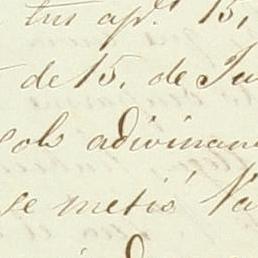 tus ap.l 15,
de 15. de Ju
sols adivinan
se metió Va